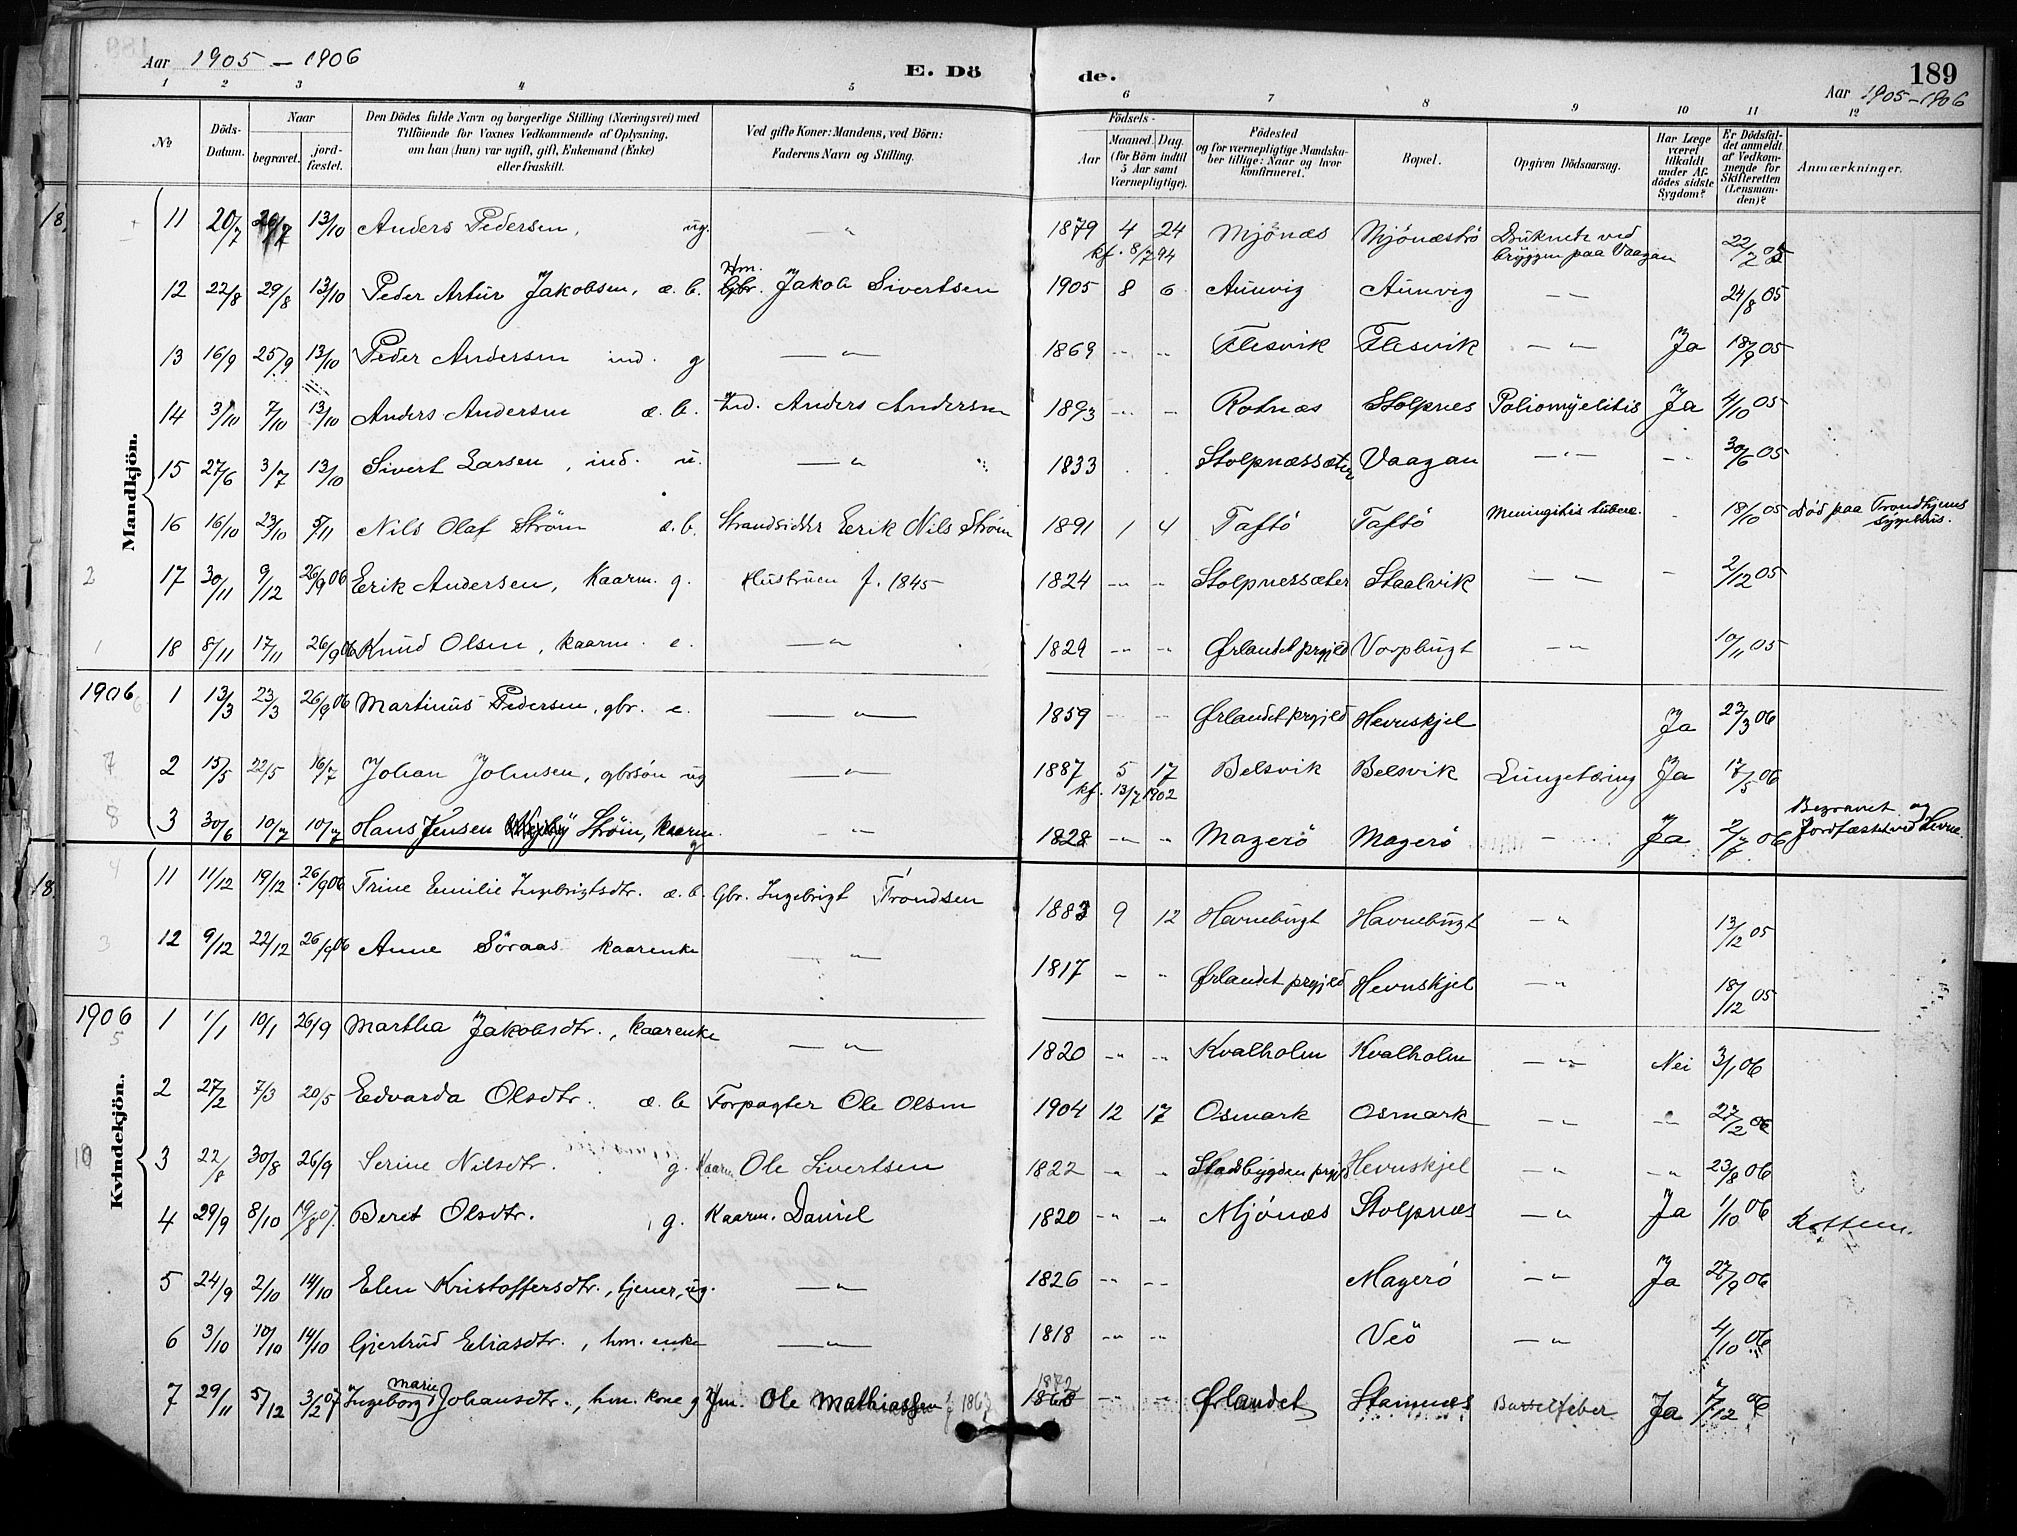 Aar 1905 – 1906
E. Dö de.
189
Aar 1905-1906
1 2 3 4 5 6 7 8 9 10 11 12
No
Döds-Datum.
Naar
begravet.
jord-fæstet.
Den Dödes fulde Navn og borgerlige Stilling (Næringsvei) med
Tilföiende for Voxnes Vedkommende af Oplysning,
om han (hun) var ugift, gift, Enkemand (Enke)
eller fraskilt.
Ved gifte Koner: Mandens, ved Börn:
Faderens Navn og Stilling.
Födsels-
Aar
Maaned. Dag.
(for Börn indtil
5 Aar samt
Værnepligtige).
Födested
og for værnepligtige Mandska-
ber tillige: Naar og hvor
konfirmeret.
Bopæl.
Opgiven Dödsaarsag.
Har Læge
været
tilkaldt
under Af-
dödes sidste
Sygdom?
Er Dödsfal-
det anmeldt
af Vedkom-
mende for
Skifteretten
(Lensman-
den)?
Anmærkninger.
Mandkjön.
11 20/7 26/7 13/10 Anders Pedersen, ug. — " 1879 4 24 Mjönæs Mjönæströ Druknede ved 22/7 05
kf. 8/7 94 bryggen paa Vaagan
12 22/8 29/8 13/10 Peder Artur Jakobsen, æ. b. Hm. Gbr. Jakob Sivertsen 1905 8 6 Aunvig Aunvig — " — 24/8 05
13 16/9 25/9 13/10 Peder Andersen ind. g — " 1869 -"- -"- Flesvik Flesvik — " — Ja 18/9 05
14 3/10 7/10 13/10 Anders Andersen æ. b. Ind. Anders Andersen 1893 -"- - Rotnæs Stolpnes Poliomyelitis Ja 4/10 05
15 27/6 3/7 13/10 Sivert Larsen, ind. u. — " 1833 Stolpnæssæter Vaagan — " — -"- 30/6 05
16 16/10 23/10 5/11 Nils Olaf Strøm æ. b. Strandsidder Eerik Nils Strøm 1891 1 4 Taftö Taftö Meningitis tuberc. - 18/10 05 Död paa Trondhjems
Sygehus.
2 17 30/11 9/12 26/9 06 Erik Andersen, kaarm. g. Hustruen f. 1845 1824 -"- -"- Stolpnessæter Staalvik — " — - 2/12 05
1 18 8/11 17/11 26/9 06 Knud Olsen, kaarm. e. — " 1829 -"- -"- Ørlandet prgjeld Vorpbugt — " — 10/11 05
1906
6 1 13/3 23/3 26/9 06 Martinus Pedersen, gbr. e. — " — 1859 -"- -"- Ørlandet prgjeld Hevnskjel Ja 23/3 06
7 2 15/5 22/5 16/7 Johan Johnsen, gbrsøn ug — " — 1887 5 17 Belsvik Belsvik Lungetæring Ja 17/5 06
kf. 13/7 1902
8 3 30/6 10/7 10/7 Hans Jensen Strøm, kaarm. g — " 1828 -"- -"- Magerö Magerö — " Ja 2/7 06 Begravet og
Jordfæstet ved Hevne.
Kvindekjön.
4 11 11/12 19/12 26/9 06 Trine Emilie Ingebrigtsdtr. æ. b. Gbr. Ingebrigt Trondsen 1883 9 12 Havnebugt Havnebugt — " 13/12 05
3 12 9/12 22/12 26/9 06 Anne Söraas kaarenke — " 1817 - " Ørlandet prgjeld Hevnskjel — " 18/12 05
1906
5 1 1/1 10/1 26/9 Martha Jakobsdtr., kaarenke — " — 1820 -"- -"- Kvalholm Kvalholm — " — Nei 3/1 06
2 27/2 7/3 20/5 Edvarda Olsdtr. æ. b Forpagter Ole Olsen 1904 12 17 Osmark Osmark — " — -"- 27/2 06
10 3 22/8 30/8 26/9 Serine Nilsdtr. g. Kaarm Ole Sivertsen 1822 " " Stadsbygden prgjeld Hevnskjel — " -"- 23/8 06
4 29/9 8/10 19/8 07. Beret Olsdtr. , g. Kaarm. Daniel 1820 -"- -"- Mjönæs Stolpnæs — " Ja 1/10 06
5 24/9 2/10 14/10 Elen Kristoffersdtr., tjener, ug. — " — 1826 -"- -"- Magerö — " Ja 27/9 06
6 3/10 10/10 14/10 Gjertrud Eliasdtr., hm. enke — " — 1818 -"- -"- Veö — " — 4/10 06
7 29/11 5/12 3/2 07 Ingeborg Marie Johansdtr., hm. kone g Hm. Ole Mathiassen f 1867 1872 1868 -"- " Ørlandet Stamnæs Barselfeber Ja 7/12 06